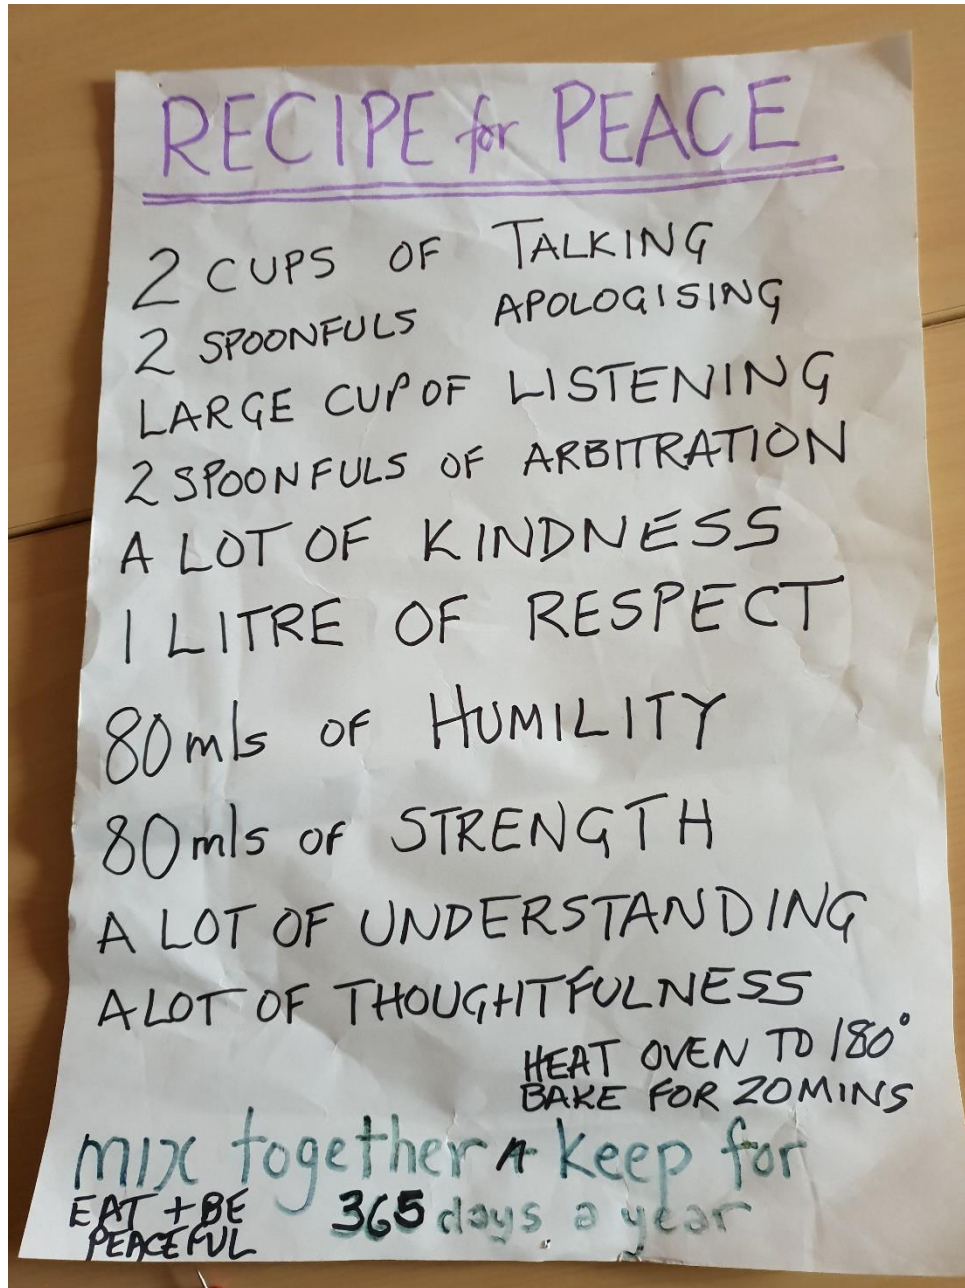 RECIPE for PEACE
2 CUPS OF TALKING
2 SPOONFULS APOLOGISING
LARGE CUP OF LISTENING
2 SPOONFULS OF ARBITRATION
A LOT OF KINDNESS
1 LITRE OF RESPECT
80mls OF HUMILITY
80mls OF STRENGTH
A LOT OF UNDERSTANDING
A LOT OF THOUGHTFULNESS
HEAT OVEN TO 180°
BAKE FOR 20 MINS
mix together + keep for
365 days a year
EAT + BE
PEACEFUL